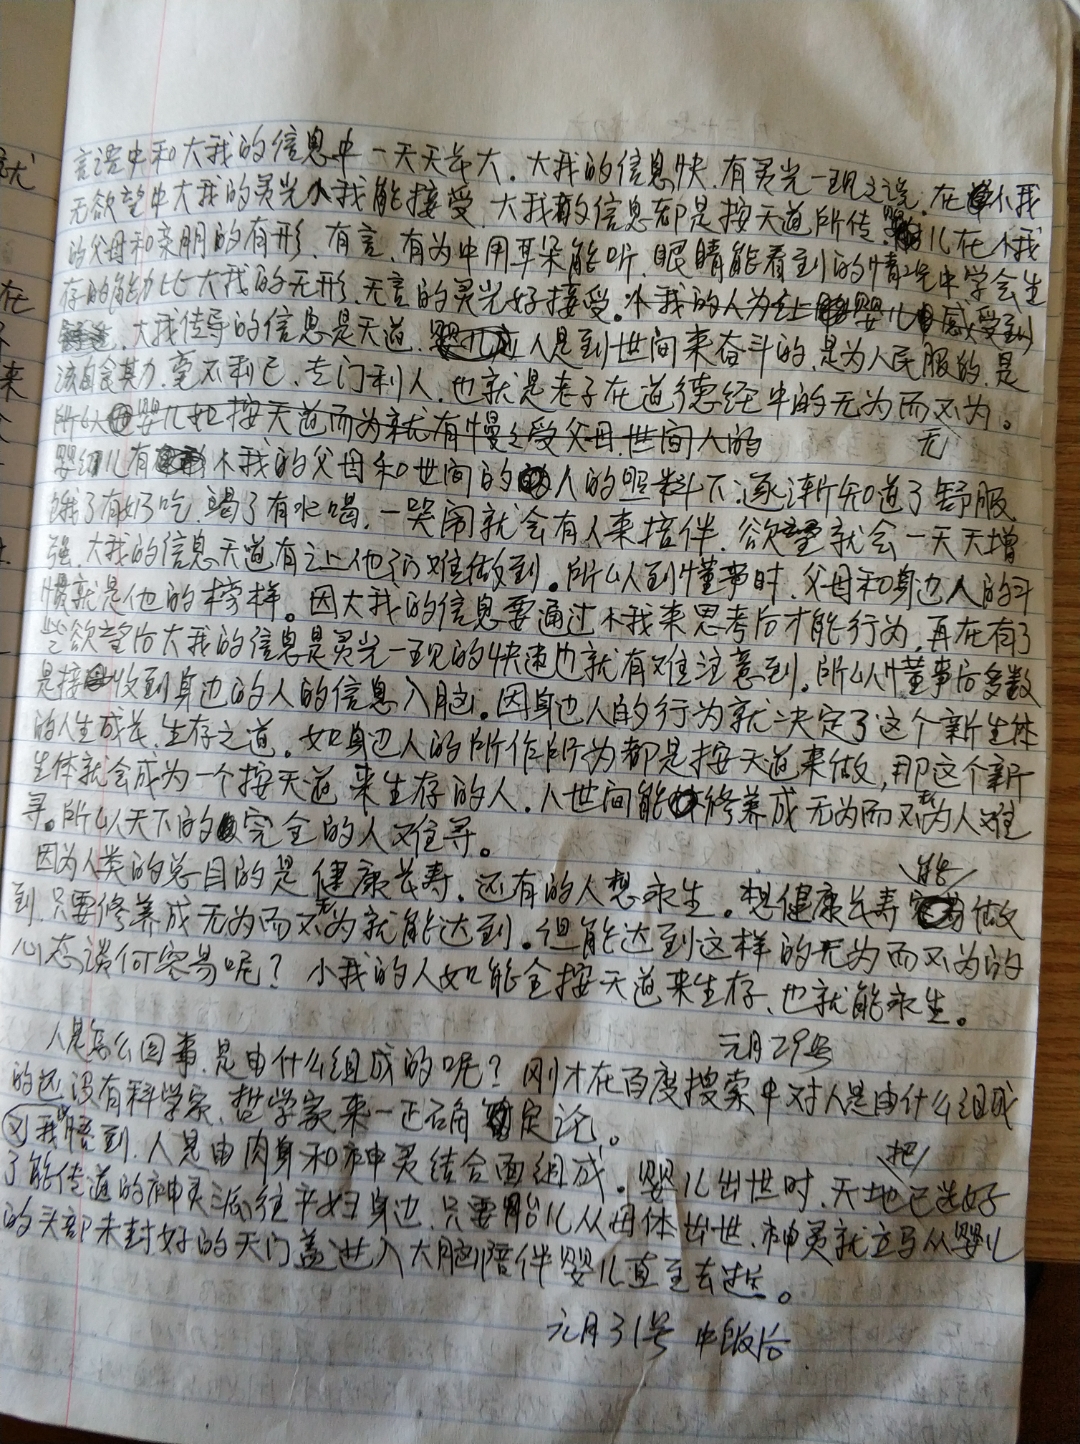 言语中和大我的信息中一天天长大。大我的信息快,有灵光一现之说,在小我
无欲望中大我的灵光小我能接受,大我的信息都是按天道所传,婴儿在小我
的父母和亲朋的有形、有言、有为中用耳朵能听、眼睛能看到的情况中学会生
存的能力比大我的无形、无言的灵光好接受。小我的人为让婴儿感受到
大我传导的信息是天道,人是到世间来奋斗的,是为人民服的,是
自食其力、毫不利己、专门利人,也就是老子在道德经中的无为而不为。
无
所以婴儿他按天道而为就有慢之受父母世间人的
婴幼儿有小我的父母和世间的人的照料下,逐渐知道了舒服,
饿了有好吃,渴了有水喝,一哭闹就会有人来陪伴,欲望就会一天天增
强,大我的信息天道有之上他们难做到。所以到懂事时,父母和身边人的习
惯就是他的榜样。因大我的信息要通过小我来思考后才能行为,再在有了
些欲望后大我的信息是灵光一现的快速也就有难注意到。所以懂事后多数
是接收到身边的人的信息入脑。因身边人的行为就决定了这个新生体
的人生成长、生存之道。如身边人的所作所为都是按天道来做,那这个新
生体就会成为一个按天道来生存的人。人世间能修养成无为而不为人难
寻。所以天下的完全的人难寻。
因为人类的总目的是健康长寿,还有的人想永生。想健康长寿能做
到,只要修养成无为而不为就能达到。但能达到这样的无为而不为的
心态谈何容易呢?小我的人如能全按天道来生存,也就能永生。
元月29号
人是怎么回事,是由什么组成的呢?刚才在百度搜索中对人是由什么组成
的还没有科学家、哲学家来一正确定论。
我悟到,人是由肉身和神灵结合而组成。婴儿出世时,天地已把选好
了能传道的神灵派往孕妇身边,只要胎儿从母体出世,神灵就立马从婴儿
的头部未封好的天门盖进入大脑陪伴婴儿直至去逝。
元月31号 中饭后